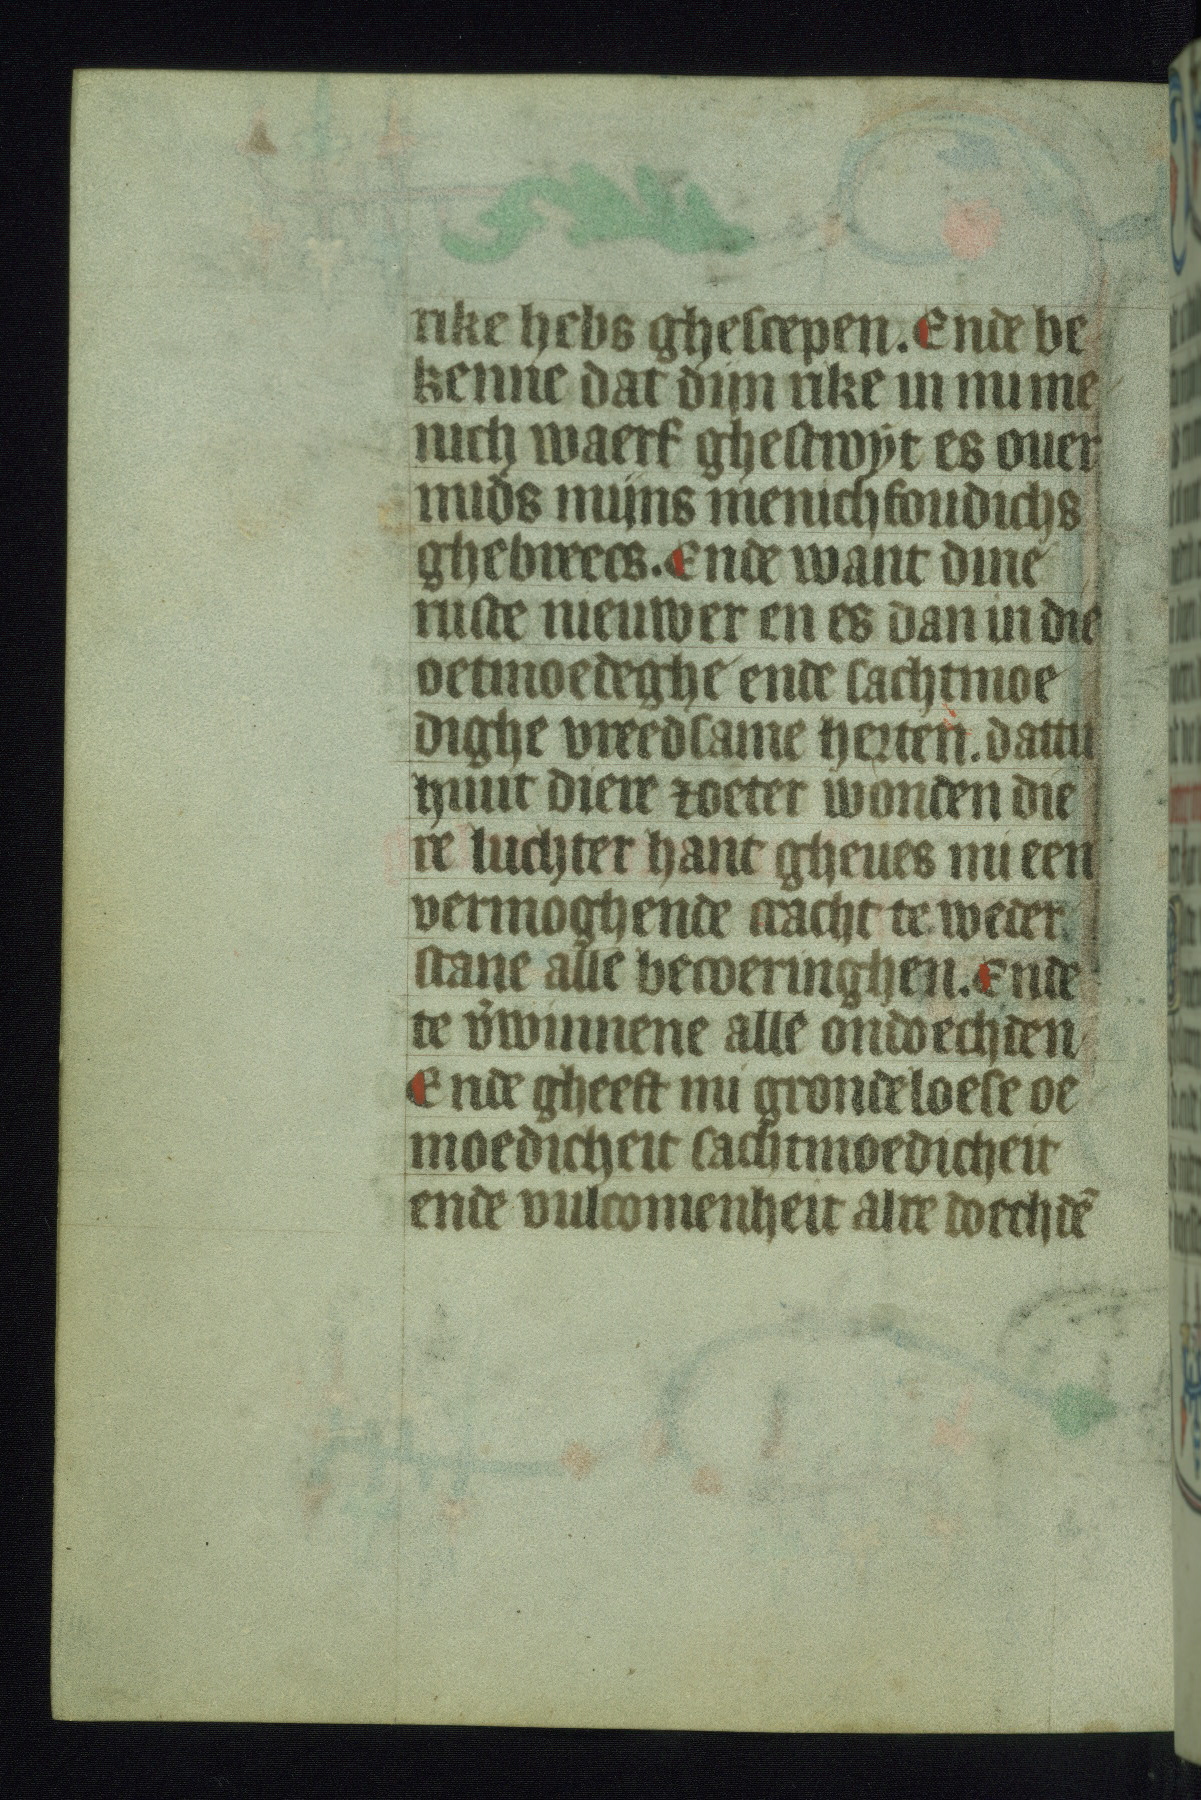 rike hebs ghescepen. Ende be
kenne dat dijn rike in mi me
nich waerf ghestwÿt es ouer
mids mijns menichfoudichs
ghebreecs. Ende want dine
ruste nieuwer en es dan in die
oetmoedeghe ende sachtmoe
dighe vreedsame herten. dattu
huut diere zoeter wonden die
re luchter hant gheues mi een
vermoghende cracht te weder
stane alle becoeringhen. Ende
te v̄winnene alle ondoechden
Ende gheeft mi grondeloese oe
moedicheit sachtmoedicheit
ende vulcomenheit alre doechdē